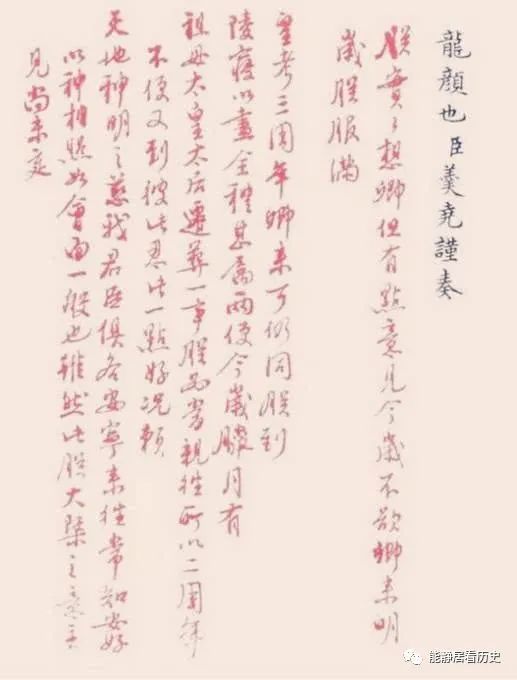 龍顏也臣羹堯謹奏
朕實實想卿但有點意見今歲不欲卿來明
歲朕服滿
皇考三周年卿來可仍同朕到
陵寢以盡全禮甚屬兩便今歲臘月有
祖母太皇太后遷葬一事朕當親往所以二周年
不便又到彼此忍此一點好況賴
天地神明之慈我君臣俱各安寧來往常知安好
以神相照如會面一般也雖然此朕大槩之意
見尚未定
能静居看历史